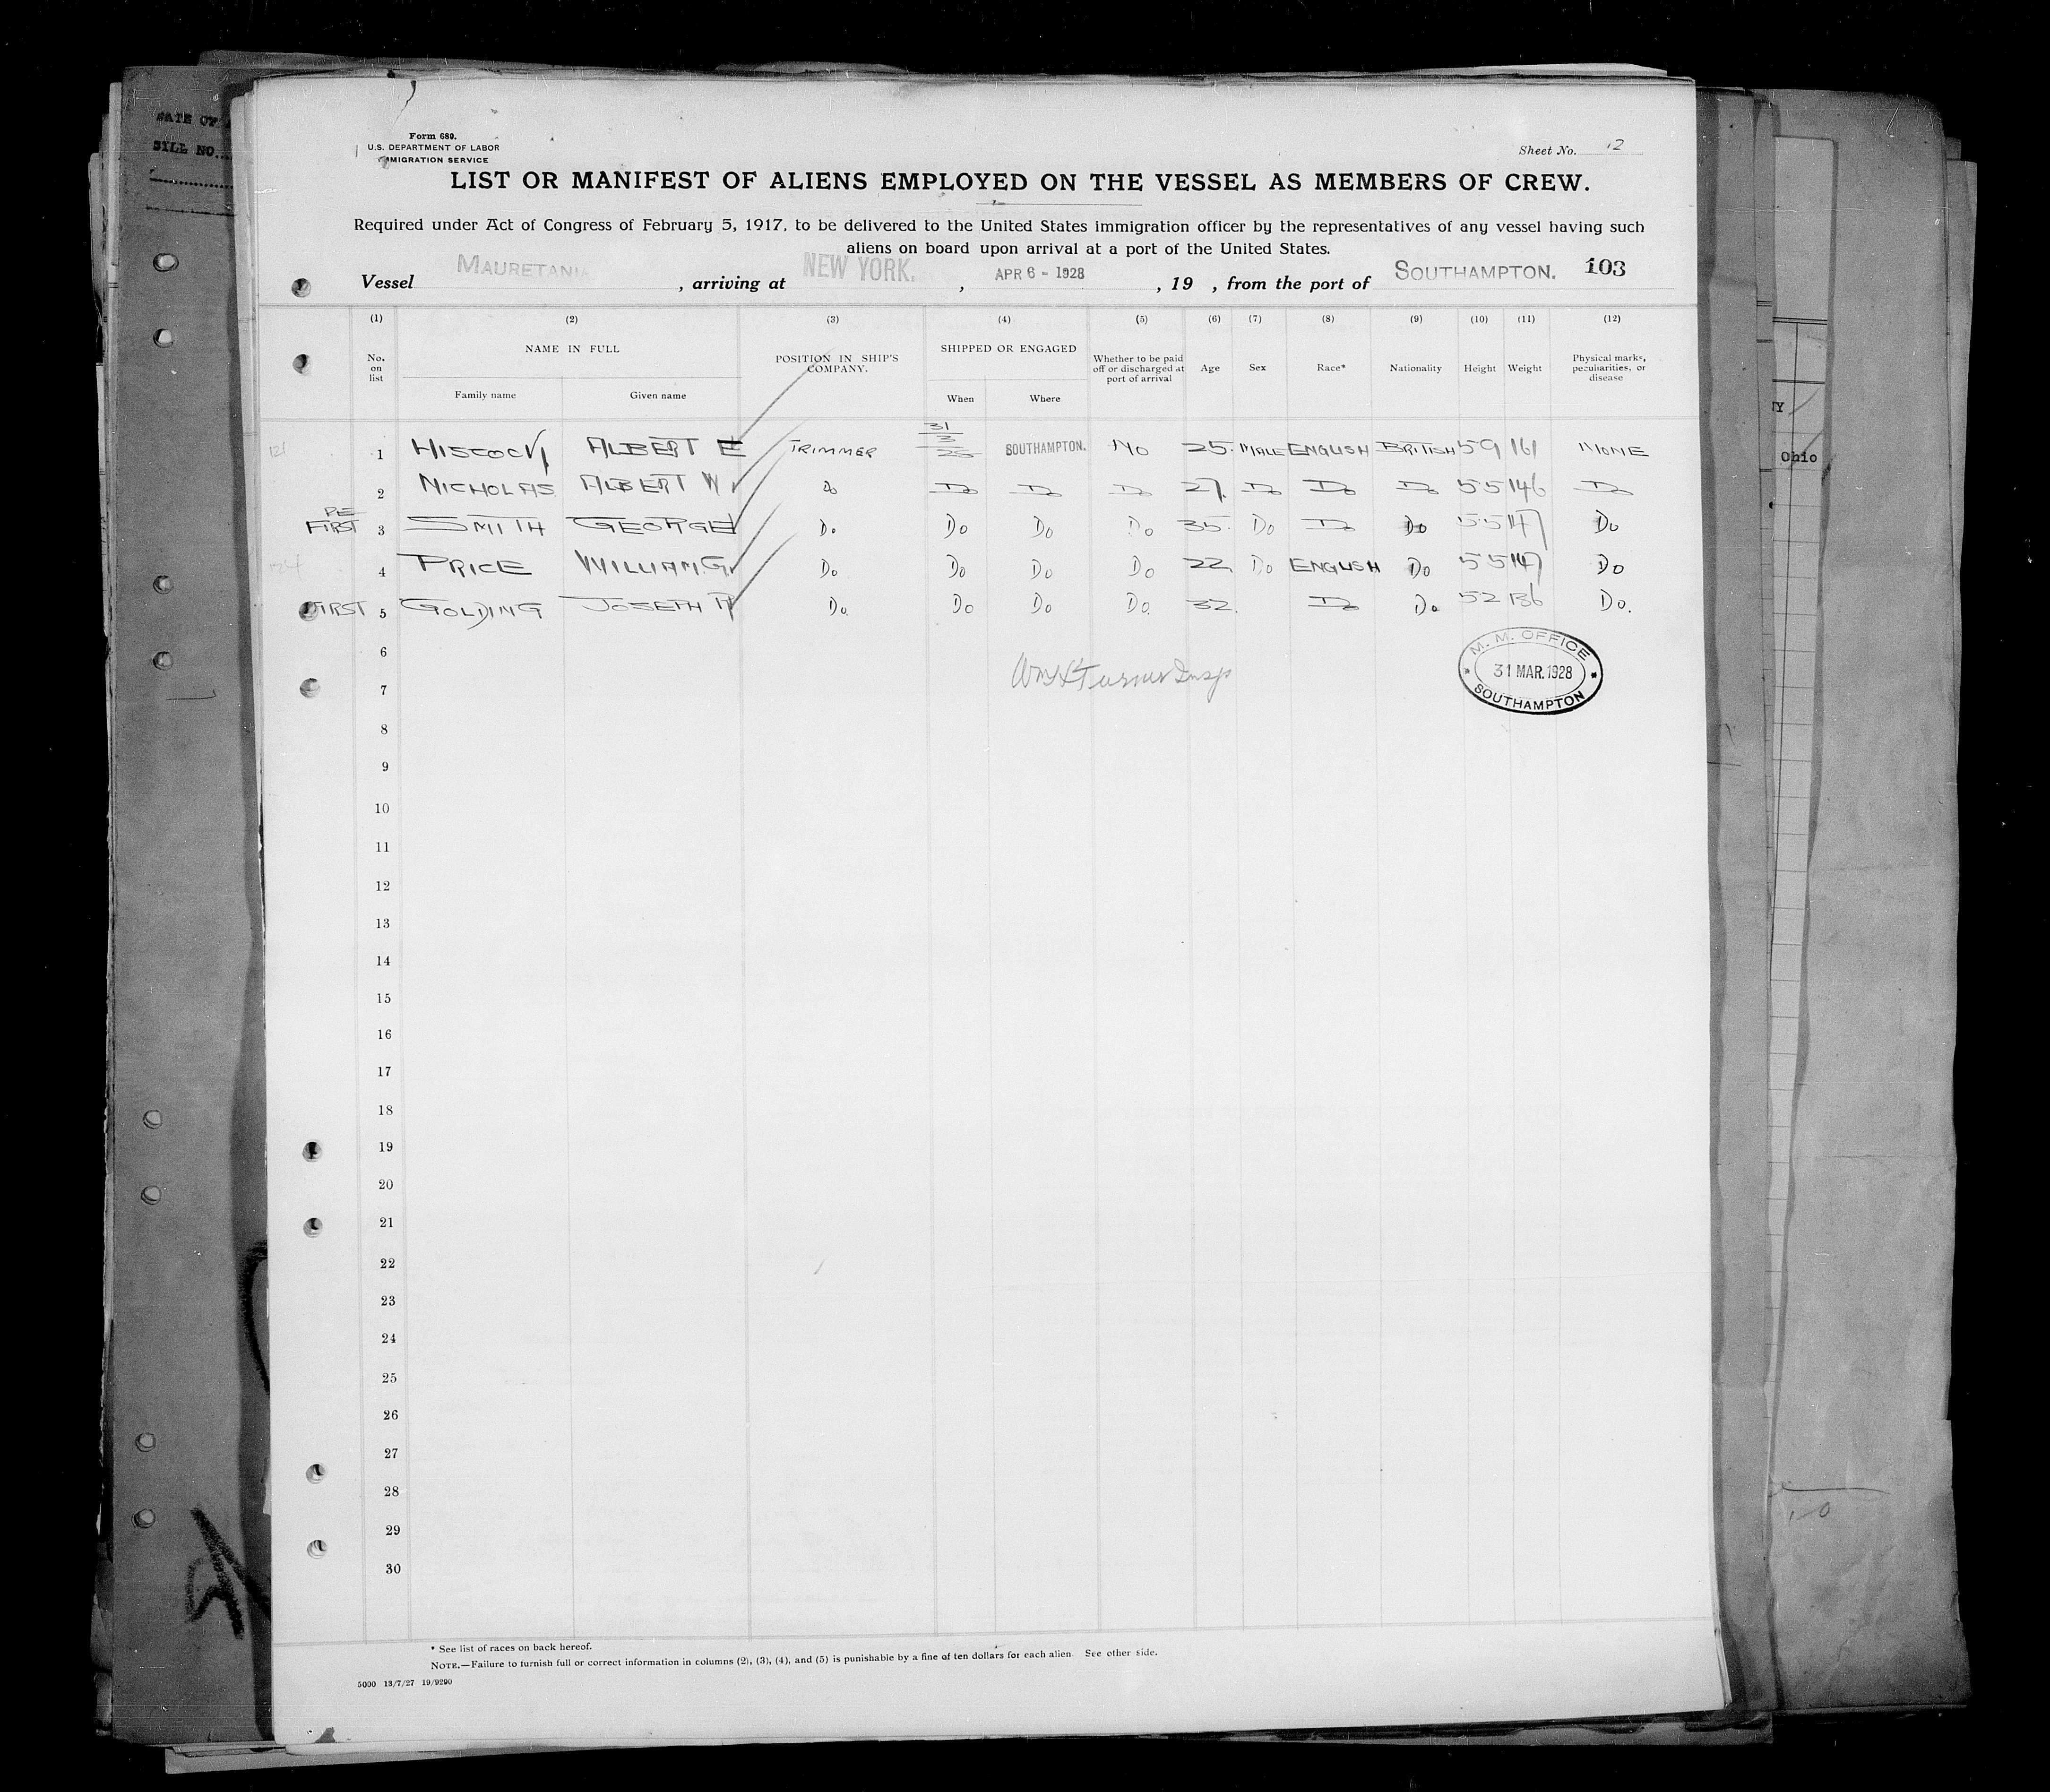 DATE OF
BILL NO.
Form 689.
U.S. DEPARTMENT OF LABOR
IMMIGRATION SERVICE
Sheet No. 12
LIST OR MANIFEST OF ALIENS EMPLOYED ON THE VESSEL AS MEMBERS OF CREW.
Required under Act of Congress of February 5, 1917, to be delivered to the United States immigration officer by the representatives of any vessel having such
aliens on board upon arrival at a port of the United States.
Vessel MAURETANIA , arriving at NEW YORK. , APR 6 - 1928 , 19 , from the port of SOUTHAMPTON. 103
(1) (2) (3) (4) (5) (6) (7) (8) (9) (10) (11) (12)
No. on list NAME IN FULL Family name Given name POSITION IN SHIP'S COMPANY. SHIPPED OR ENGAGED When Where Whether to be paid off or discharged at port of arrival Age Sex Race* Nationality Height Weight Physical marks, peculiarities, or disease
1 HISCOCK ALBERT E TRIMMER 31 3 28 SOUTHAMPTON. NO 25. MALE ENGLISH BRITISH 59 161 NONE
2 NICHOLAS ALBERT W Do Do Do Do 27. Do Do Do 55 146 Do
RE FIRST 3 SMITH GEORGE Do Do Do Do 35. Do Do Do 55 147 Do
4 PRICE WILLIAM.G. Do Do Do Do 22. Do ENGLISH Do 55 147 Do
FIRST 5 GOLDING JOSEPH Do. Do Do Do. 32. Do Do 52 136 Do.
6
7
Wm H Turner Insp
M. M. OFFICE
31 MAR. 1928
SOUTHAMPTON
8
9
10
11
12
13
14
15
16
17
18
19
20
21
22
23
24
25
26
27
28
29
30
* See list of races on back hereof.
NOTE.—Failure to furnish full or correct information in columns (2), (3), (4), and (5) is punishable by a fine of ten dollars for each alien. See other side.
5000 13/7/27 19/9290
Ohio